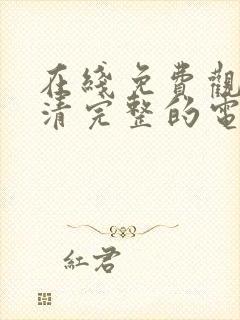 在綫免費觀
清完整的電
紅君